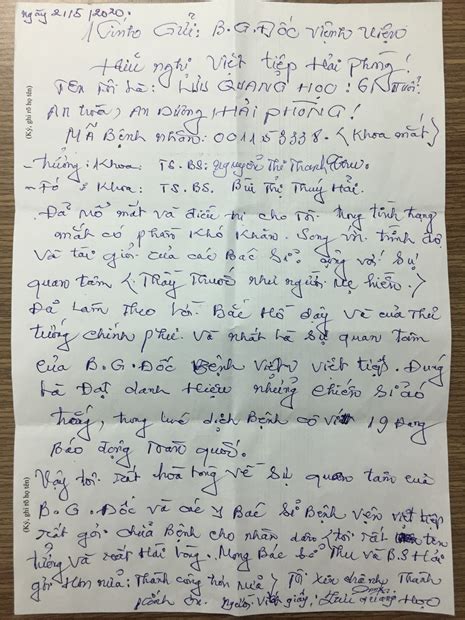 ngày 21/5/2020.
Kính Gửi: B.G. Đốc Viện Việt
Hữu nghị Việt tiệp Hải phòng!
Tên Tôi là: LƯU QUANG HỌC: 6 Tuổi.
An Hòa, An Dương, HẢI PHÒNG!
MÃ Bệnh nhân: 001153338. (Khoa mắt)
- Trưởng: Khoa: TS.BS: Nguyễn Thị Thanh Thu.
- Fó Khoa: TS.BS. Bùi Thị Thuý Hải.
Đã mổ mắt và điều trị cho Tôi trong tình trạng
mắt có phần khó khăn. Song với trình độ
và tài giỏi của các Bác Sỉ cộng với Sự
quan tâm (Thầy Thuốc như người mẹ hiền.)
Đã Làm Theo Lời Bác Hồ dậy và của Thủ
tướng chính phủ và nhất là sự quan tâm
của B.G. Đốc Bệnh viện việt tiệp. Đúng
là Đạt danh Hiệu những chiến Sỉ áo
trắng, trong lúc dịch Bệnh cô vít 19 Đang
Báo động Toàn quốc.
Vậy tôi rất hài lòng về Sự quan tâm của
B.G. Đốc và các y Bác Sỉ Bệnh viện việt tiệp
rất giỏi chửa Bệnh cho nhân dân (tôi rất tin
tưởng và rất Hài lòng. Mong Bác Sỉ Thu và B.S Hải
giỏi Hơn nửa: Thành công hơn nửa) Tôi xin chân Thành
cảm ơn. Người Viết giấy: Lưu Quang Học
(Ký, ghi rõ họ tên)
(Ký, ghi rõ họ tên)